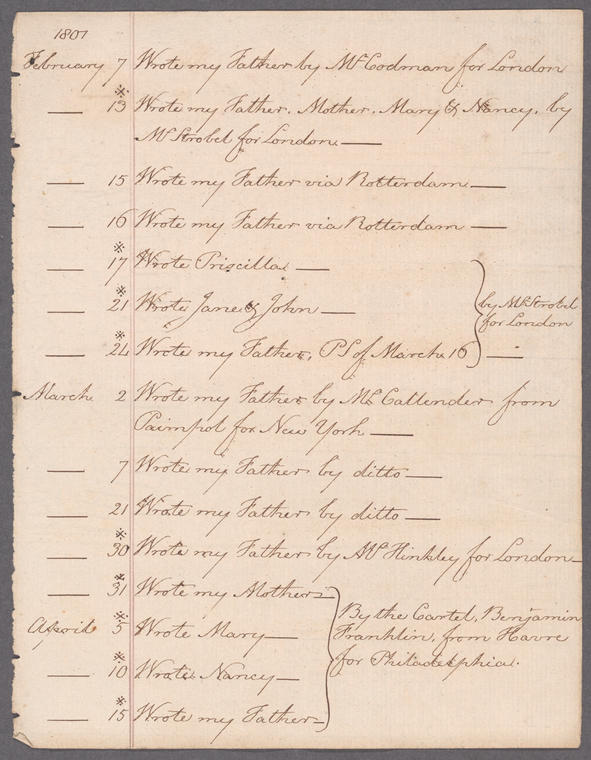 1801
February 7 Wrote my Father by Mr Codman for London
※
— 13 Wrote my Father. Mother. Mary & Nancy. by
Mr Strobel for London —
— 15 Wrote my Father via Rotterdam —
— 16 Wrote my Father via Rotterdam —
※
— 17 Wrote Priscilla —
※
— 21 Wrote Jane & John — by Mr Strobel
for London
※
— 24 Wrote my Father, PS of March 16 —
March 2 Wrote my Father by Mr Callender from
Paimpol for New York —
— 7 Wrote my Father by ditto —
— 21 Wrote my Father by ditto —
※
— 30 Wrote my Father by Mr Hinkley for London —
※
— 31 Wrote my Mother —
By the Cartel, Benjamin
※
April 5 Wrote Mary —
Franklin, from Havre
for Philadelphia.
※
— 10 Wrote Nancy —
※
— 15 Wrote my Father —